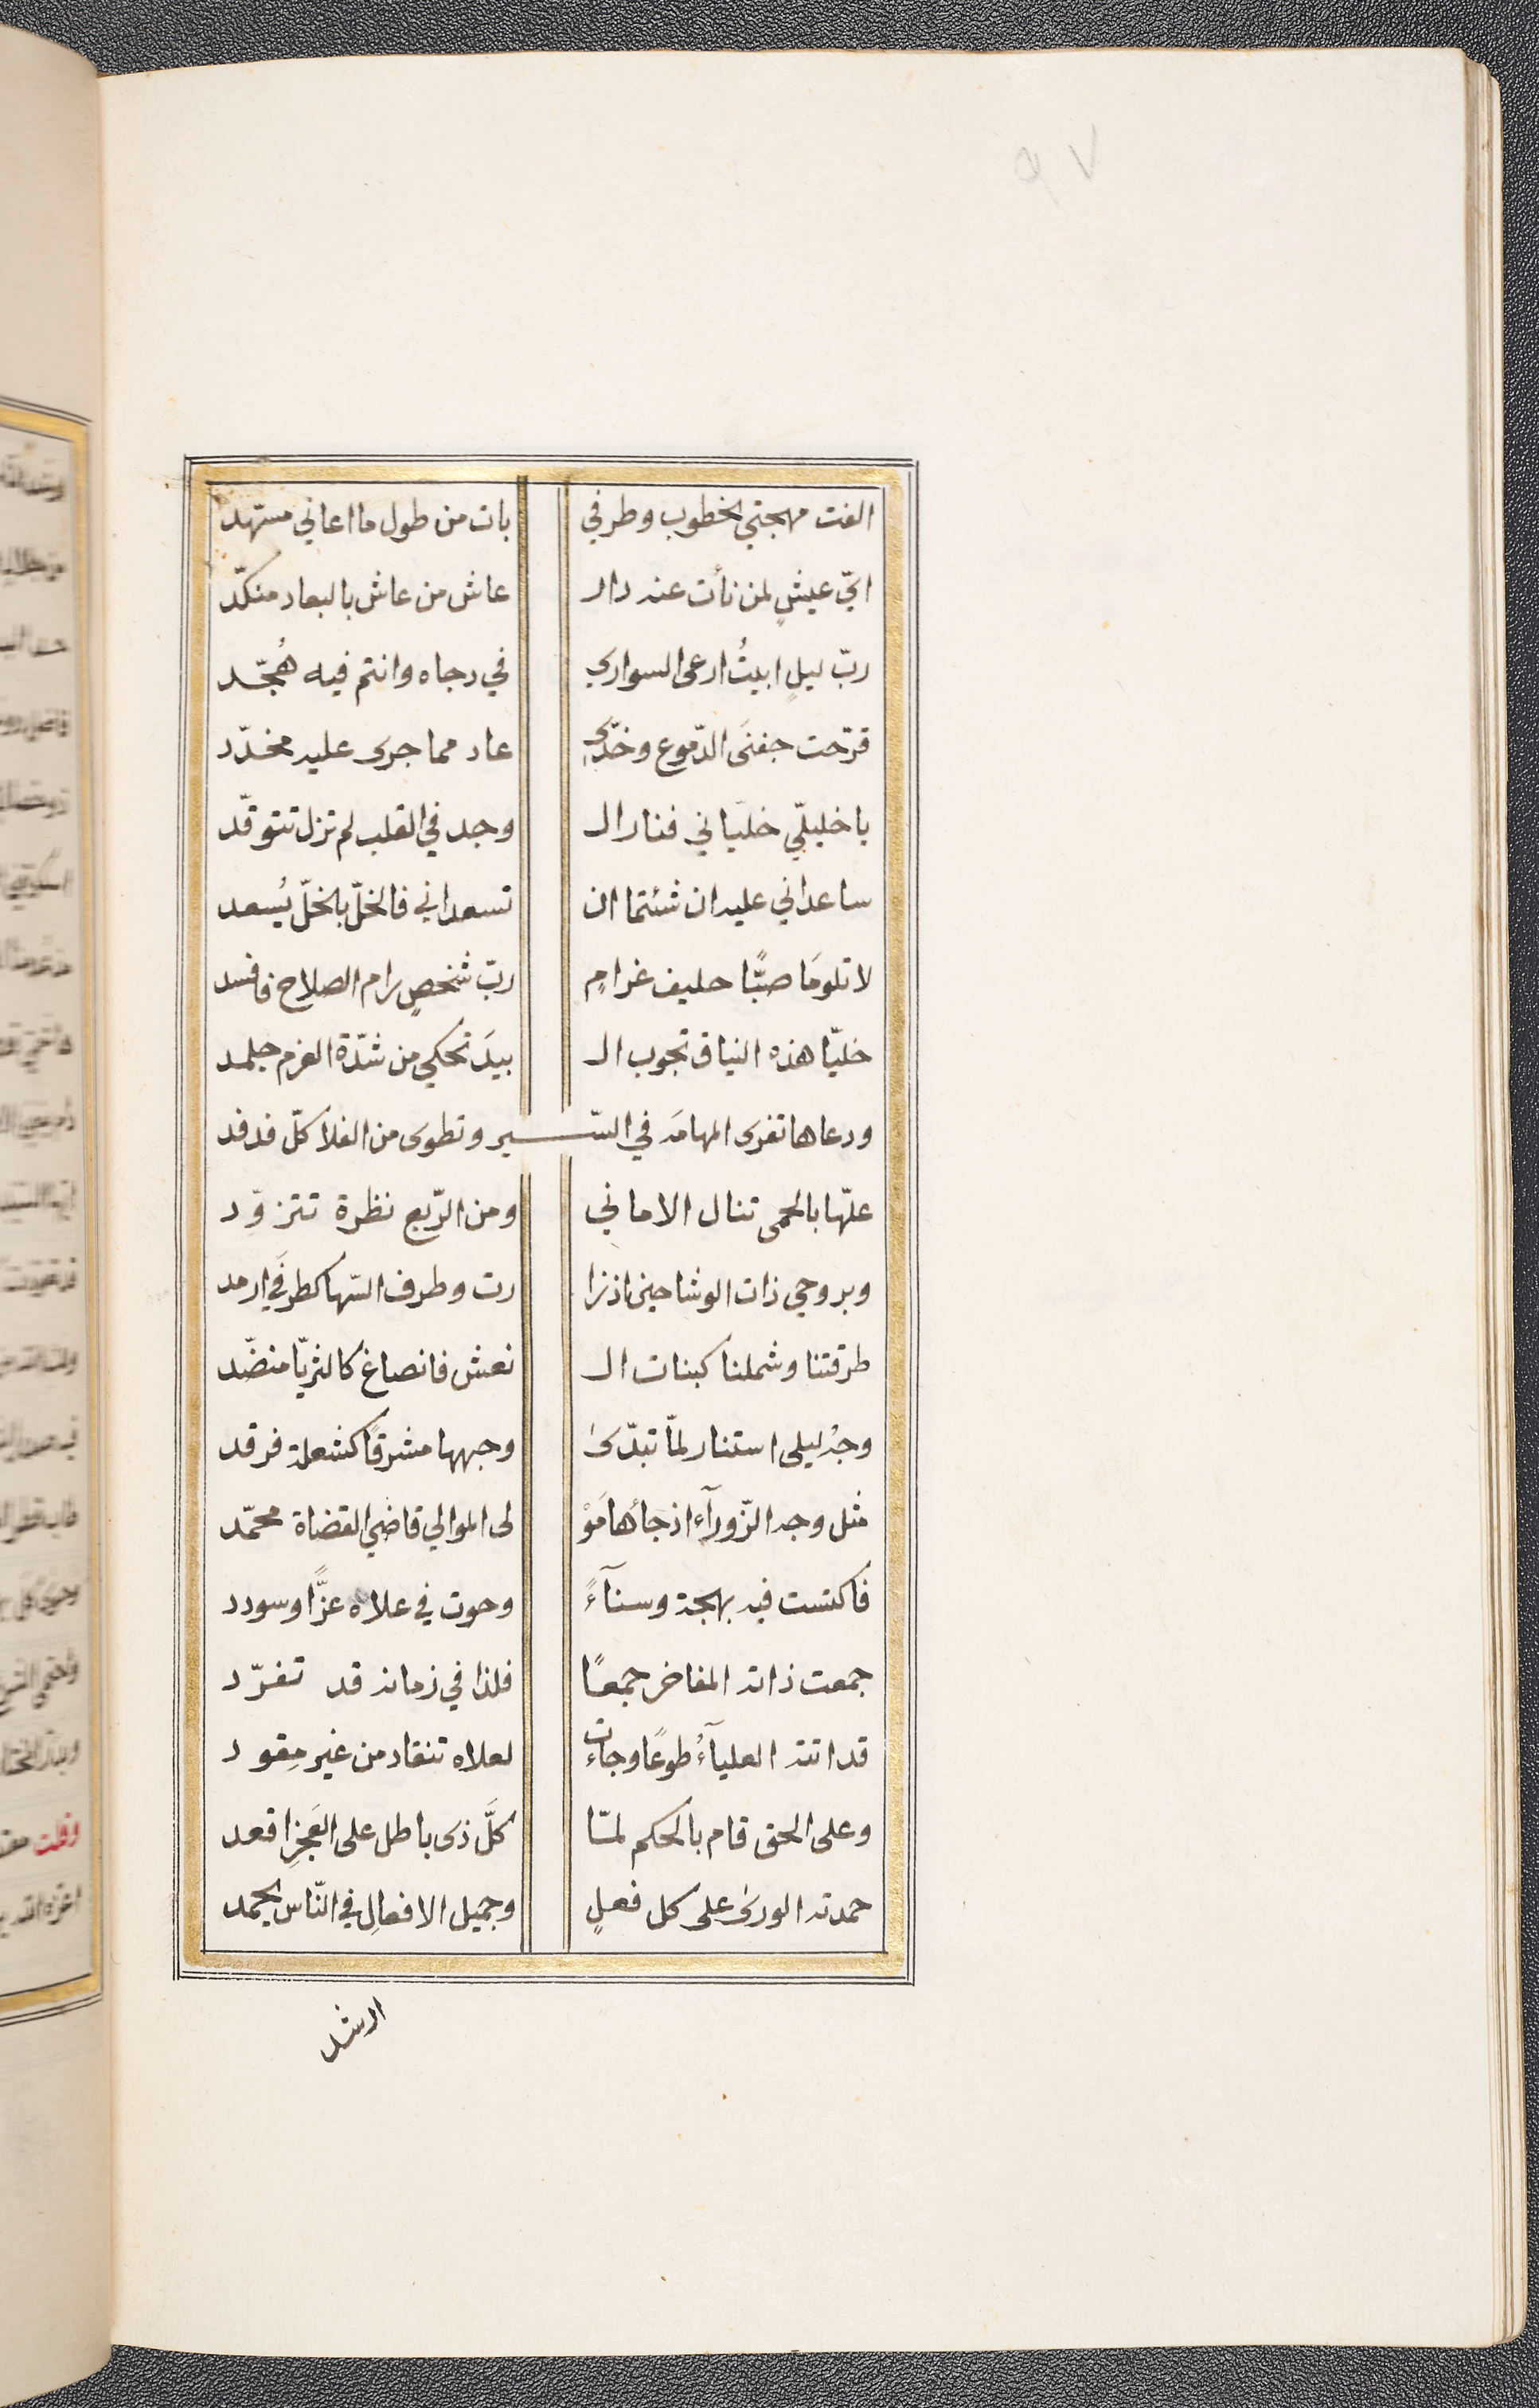 ٩٧
الفت مهجتي الخطوب وطرفي بات من طول ما اعاني مسهد
ايّ عيشٍ لمن نأت عنه دار عاش من عاش بالبعاد منكّد
ربّ ليلٍ ابيتُ ارعى السواري في دجاه وانتم فيه هُجّد
قرّحت جفنَى الدّموع وخدّى عاد مما جرى عليه مخدّد
يا خليلّي خلّياني فنار ال وجد في القلب لم تزل تتوقّد
ساعداني عليه ان شئتما ان تسعداني فالخلّ بالخلّ يُسعد
لا تلومَا صبًّا حليف غرامٍ ربّ شخصٍ رام الصلاح فافسد
خليّا هذه النياق تجوب ال بيدَ تحكي من شدّة العزم جلمد
ودعاها تفرى المهامَه في السّير وتطوى من الفلا كلّ فدفد
علّها بالحمى تنال الاماني ومن الرّبع نظرة تتزوّد
وبروحي ذات الوشاحين اذ زا رت وطرف السّها كطرفَي ارمد
طرقتنا وشملنا كبنات ال نعش فانصاغ كالثريّا منضّد
وجهُ ليلى استنار لمّا تبدّىٰ وجهها مشرقًا كشعلة فرقد
مثل وجه الزّورآء اذ جائها مَوْ لى الموالي قاضي القضاة محمّد
فاكتست فيه بهجة وسنآءً وحوت في علاه عزًّا وسودد
جمعت ذاته المفاخر جمعًا فلذا في زمانه قد تفرّد
قد اتته العليآءُ طوعًا وجاءت لعلاه تنقاد من غير مِقود
وعلى الحق قام بالحكم لمّا كلَّ ذى باطل على العَجزِ اقعد
حمدته الورىٰ على كل فعلٍ وجميل الافعالِ في النّاس يحمد
ارشد